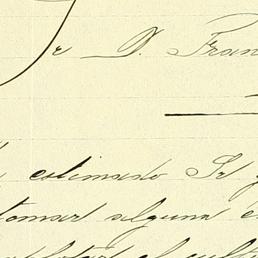 Sr D. Fran
estimado Sr y
tomar alguna
el